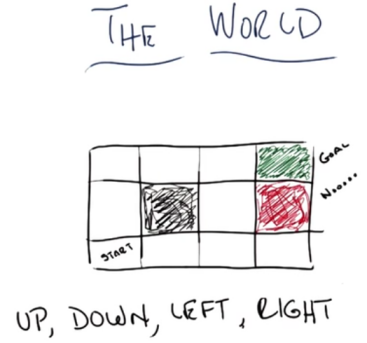 THE WORLD
GOAL
No.....
START
UP, DOWN, LEFT, RIGHT